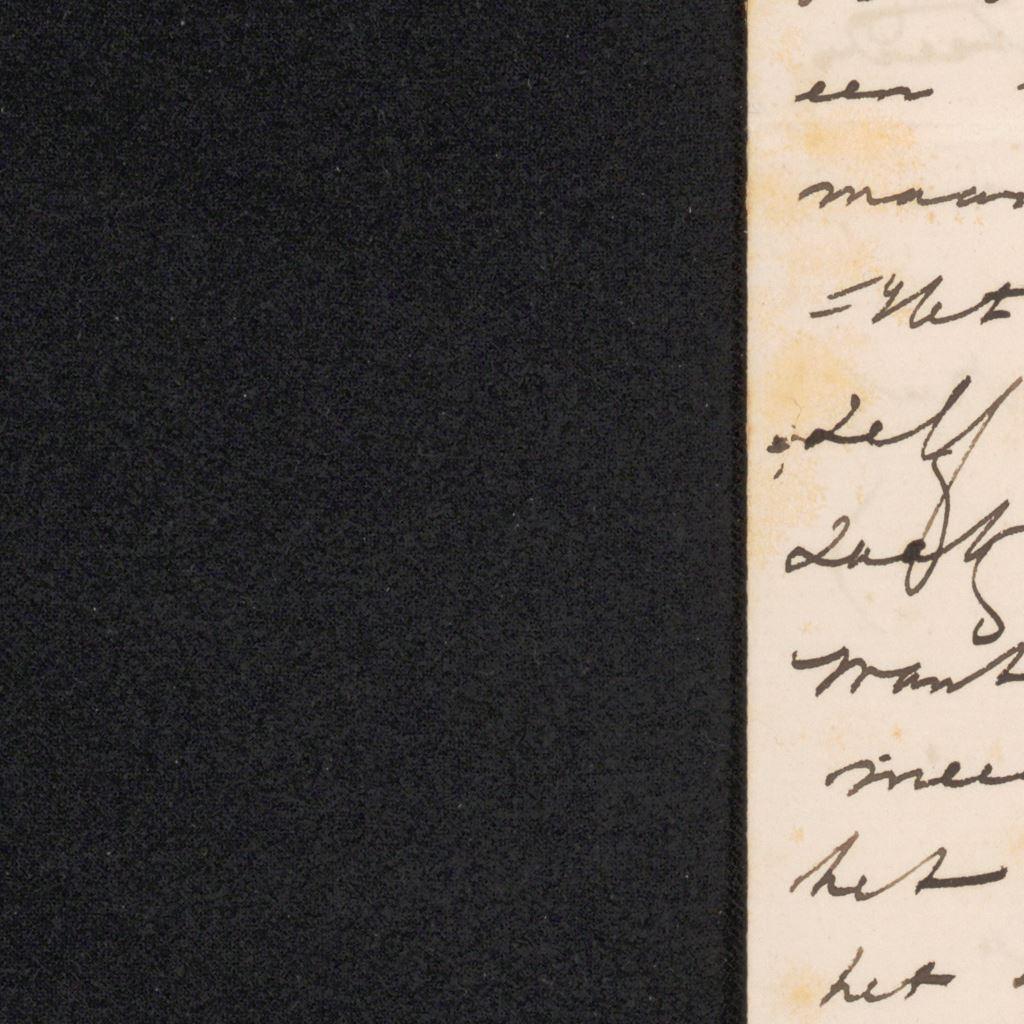 een
maar
=Het
zelf
zoek
want
meer
het
het